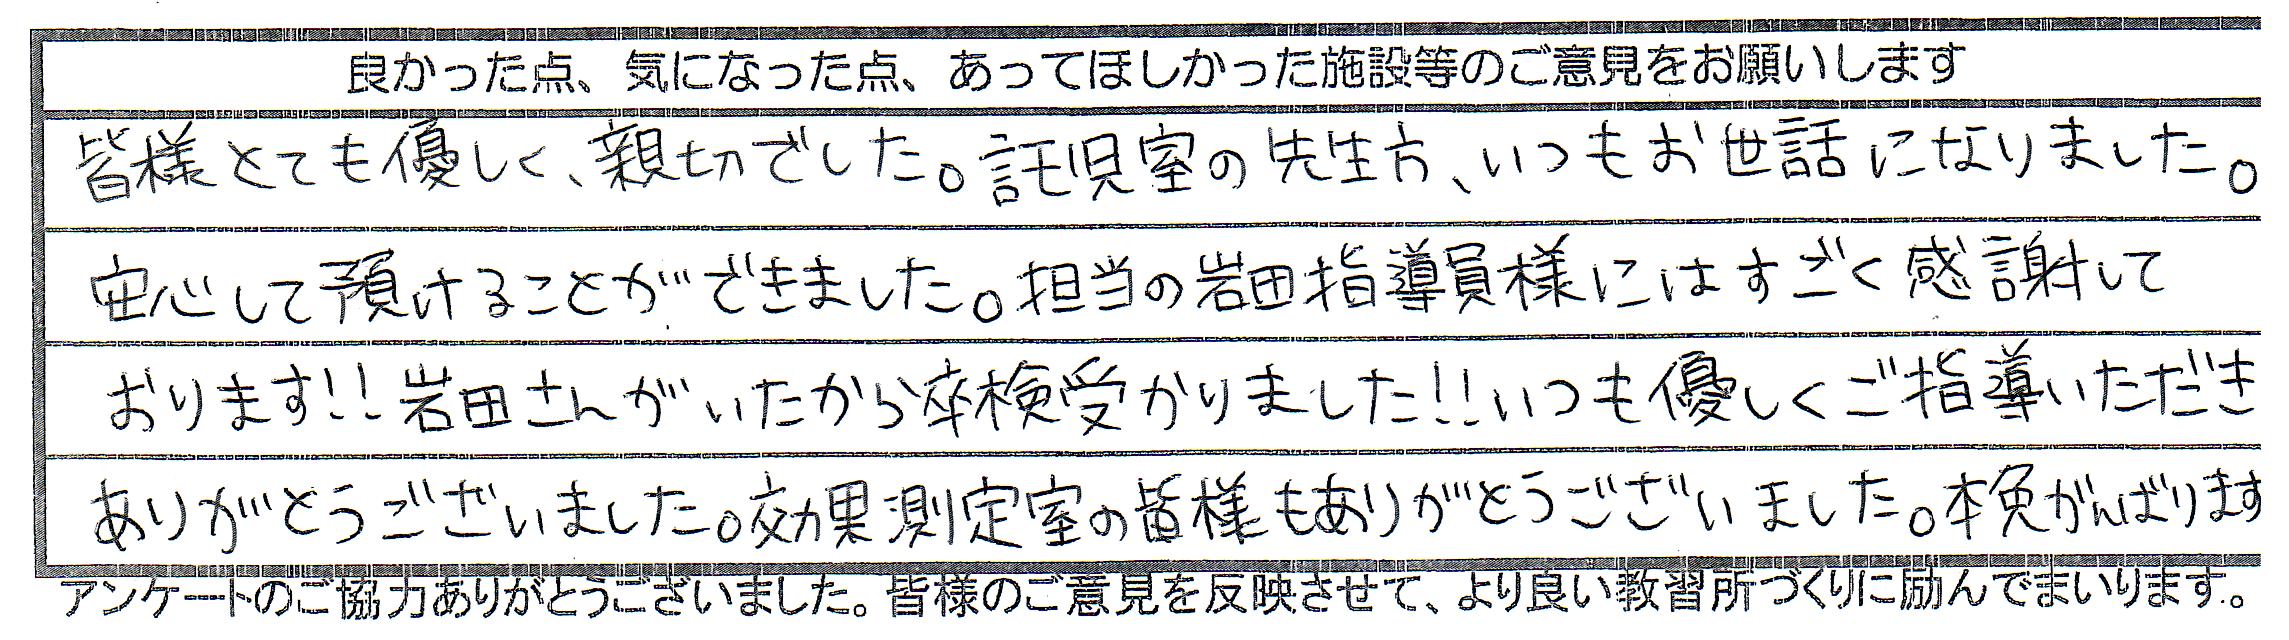 良かった点、気になった点、あってほしかった施設等のご意見をお願いします
皆様とても優しく、親切でした。託児室の先生方、いつもお世話になりました。
安心して預けることができました。担当の岩田指導員様にはすごく感謝して
おります!!岩田さんがいたから卒検受かりました!!いつも優しくご指導いただき
ありがとうございました。効果測定室の皆様もありがとうございました。本免がんばります
アンケートのご協力ありがとうございました。皆様のご意見を反映させて、より良い教習所づくりに励んでまいります。